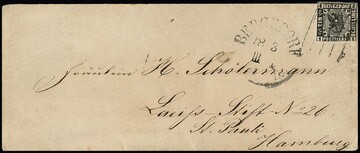 BERGEDORF
BERGEDORF
18 3
III
Fräulein H. Schötermann
Laeisz-Stift No 26
St. Pauli
Hamburg